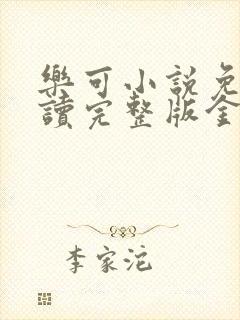 樂可小說免
讀完整版全
李家沱